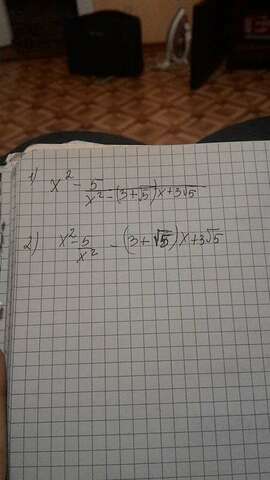 1) x² - 5/(x² - (3+√5)x+3√5)
2) (x²-5)/x² - (3+√5)x+3√5